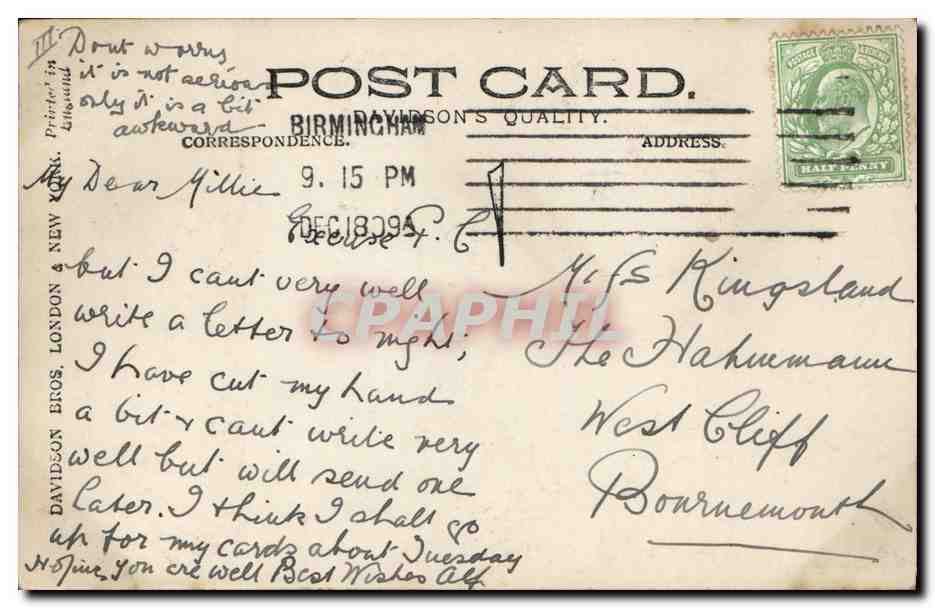 III
Dont worry
it is not serious
only it is a bit
awkward
POST CARD.
DAVIDSON'S QUALITY.
CORRESPONDENCE.
ADDRESS.
BIRMINGHAM
9. 15 PM
DEC 18 09
1
POSTAGE REVENUE
HALF PENNY
Printed in
England
DAVIDSON BROS. LONDON & NEW YORK.
My Dear Millie
Excuse P. C
but I cant very well
write a letter to night;
I have cut my hand
a bit & cant write very
well but will send one
later. I think I shall go
up for my cards about Tuesday
Hoping You are well Best Wishes Alf
Miss Kingsland
The Hahnemann
West Cliff
Bournemouth
CPAPHIL